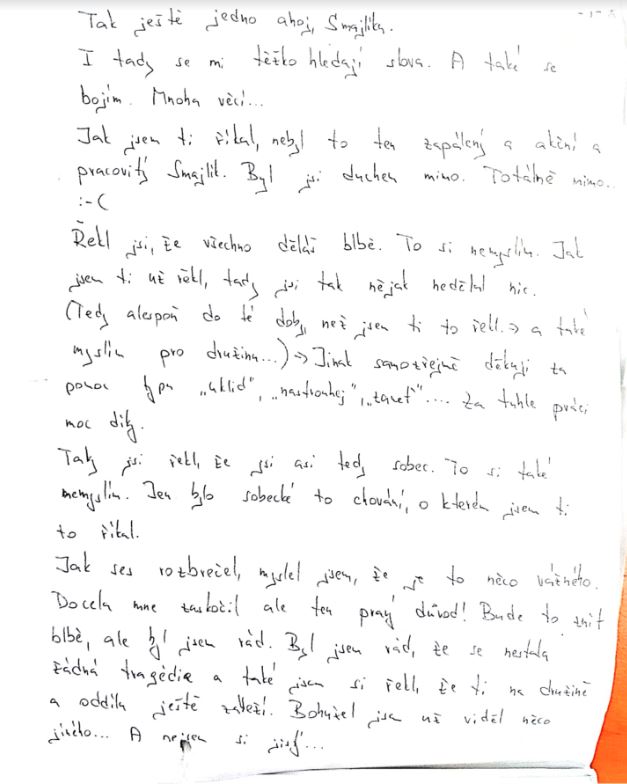 Tak ještě jedno ahoj, Smajlíku.
I tady se mi těžko hledají slova. A také se
bojím. Mnoha věcí...
Jak jsem ti říkal, nebyl to ten zapálený a akční a
pracovitý Smajlík. Byl jsi duchem mimo. Totálně mimo..
:-(
Řekl jsi, že všechno děláš blbě. To si nemyslím. Jak
jsem ti už řekl, tady jsi tak nějak nedělal nic.
(Tedy alespoň do té doby, než jsem ti to řekl. => a také
myslím pro družinu...) => Jinak samozřejmě děkuji za
pomoc typu „uklid", „nastrouhej", „zamet".... Za tuhle práci
moc díky.
Taky jsi řekl, že jsi asi tedy sobec. To si také
nemyslím. Jen bylo sobecké to chování, o kterém jsem ti
to říkal.
Jak ses rozbrečel, myslel jsem, že je to něco vážného.
Docela mne zaskočil ale ten pravý důvod! Bude to znít
blbě, ale byl jsem rád. Byl jsem rád, že se nestala
žádná tragédie a také jsem si řekl, že ti na družině
a oddílu ještě záleží. Bohužel jsem už viděl něco
jiného... A nejsem si jistý...